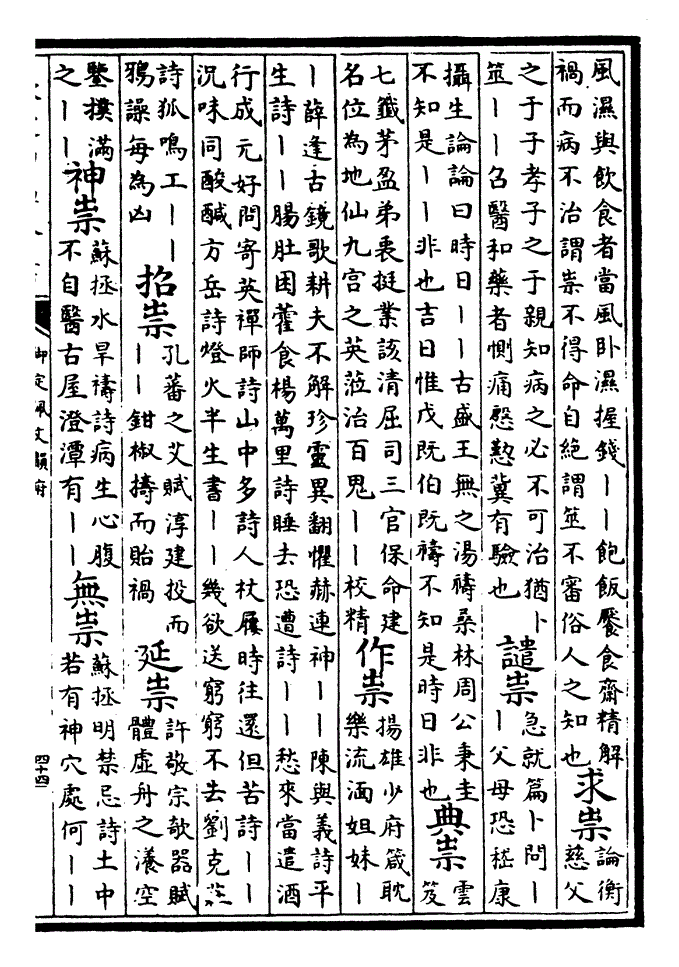 風濕與飲食者當風卧濕握錢丨丨飽飯饜食齋精解
禍而病不治謂祟不得命自絕謂筮不審俗人之知也
求祟
論衡
慈父
之于子孝子之于親知病之必不可治猶卜
筮丨丨召醫和藥者惻痛慇懃冀有驗也
譴祟
急就篇卜問丨
丨父母恐嵇康
攝生論論曰時日丨丨古盛王無之湯禱桑林周公秉圭
不知是丨丨非也吉日惟戊既伯既禱不知是時日非也
典祟
雲
笈
七籤茅盈弟衷挺業該清屈司三官保命建
名位為地仙九宮之英蒞治百鬼丨丨校精
作祟
揚雄少府箴耽
樂流湎妲妹丨
丨薛逢古鏡歌耕夫不解珍靈異翻懼赫連神丨丨陳與義詩平
生詩丨丨腸肚困藿食楊萬里詩睡去恐遭詩丨丨愁來當遣酒
行成元好問寄英禪師詩山中多詩人杖屨時往還但苦詩丨丨
況味同酸鹹方岳詩燈火半生書丨丨幾欲送窮窮不去劉克莊
詩狐鳴工丨丨
鴉譟每為凶
招祟
孔蕃之艾賦淳建投而
丨丨鉗椒擣而貽禍
延祟
許敬宗欹器賦
體虛舟之瀁空
鑒撲滿
之丨丨
神祟
蘇拯水旱禱詩病生心腹
不自醫古屋澄潭有丨丨
無祟
蘇拯明禁忌詩土中
若有神穴處何丨丨
御定佩文韻府
四十四